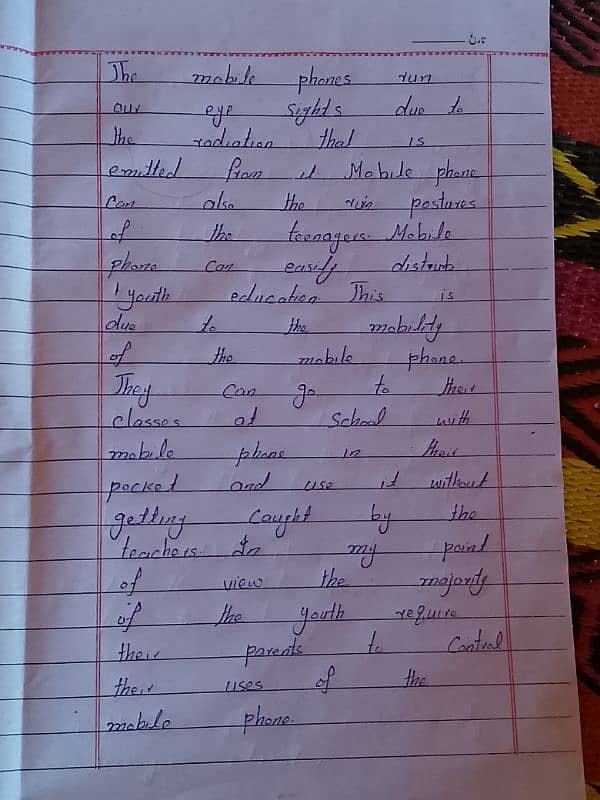 تاریخ
The mobile phones run
our eye sights due to
the radiation that is
emitted from it Mobile phone
can also the ruin postures
of the teenagers. Mobile
phone can easily disturb
youth education This is
due to the mobility
of the mobile phone.
They can go to their
classes at School with
mobile phone in their
pocket and use it without
getting caught by the
teachers. In my point
of view the majority
of the youth require
their parents to Control
their uses of the
mobile phone.